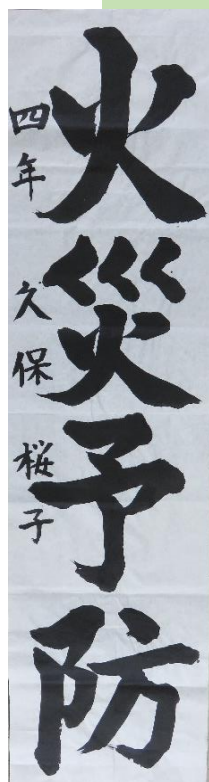 火災予防
四年 久保 桜子